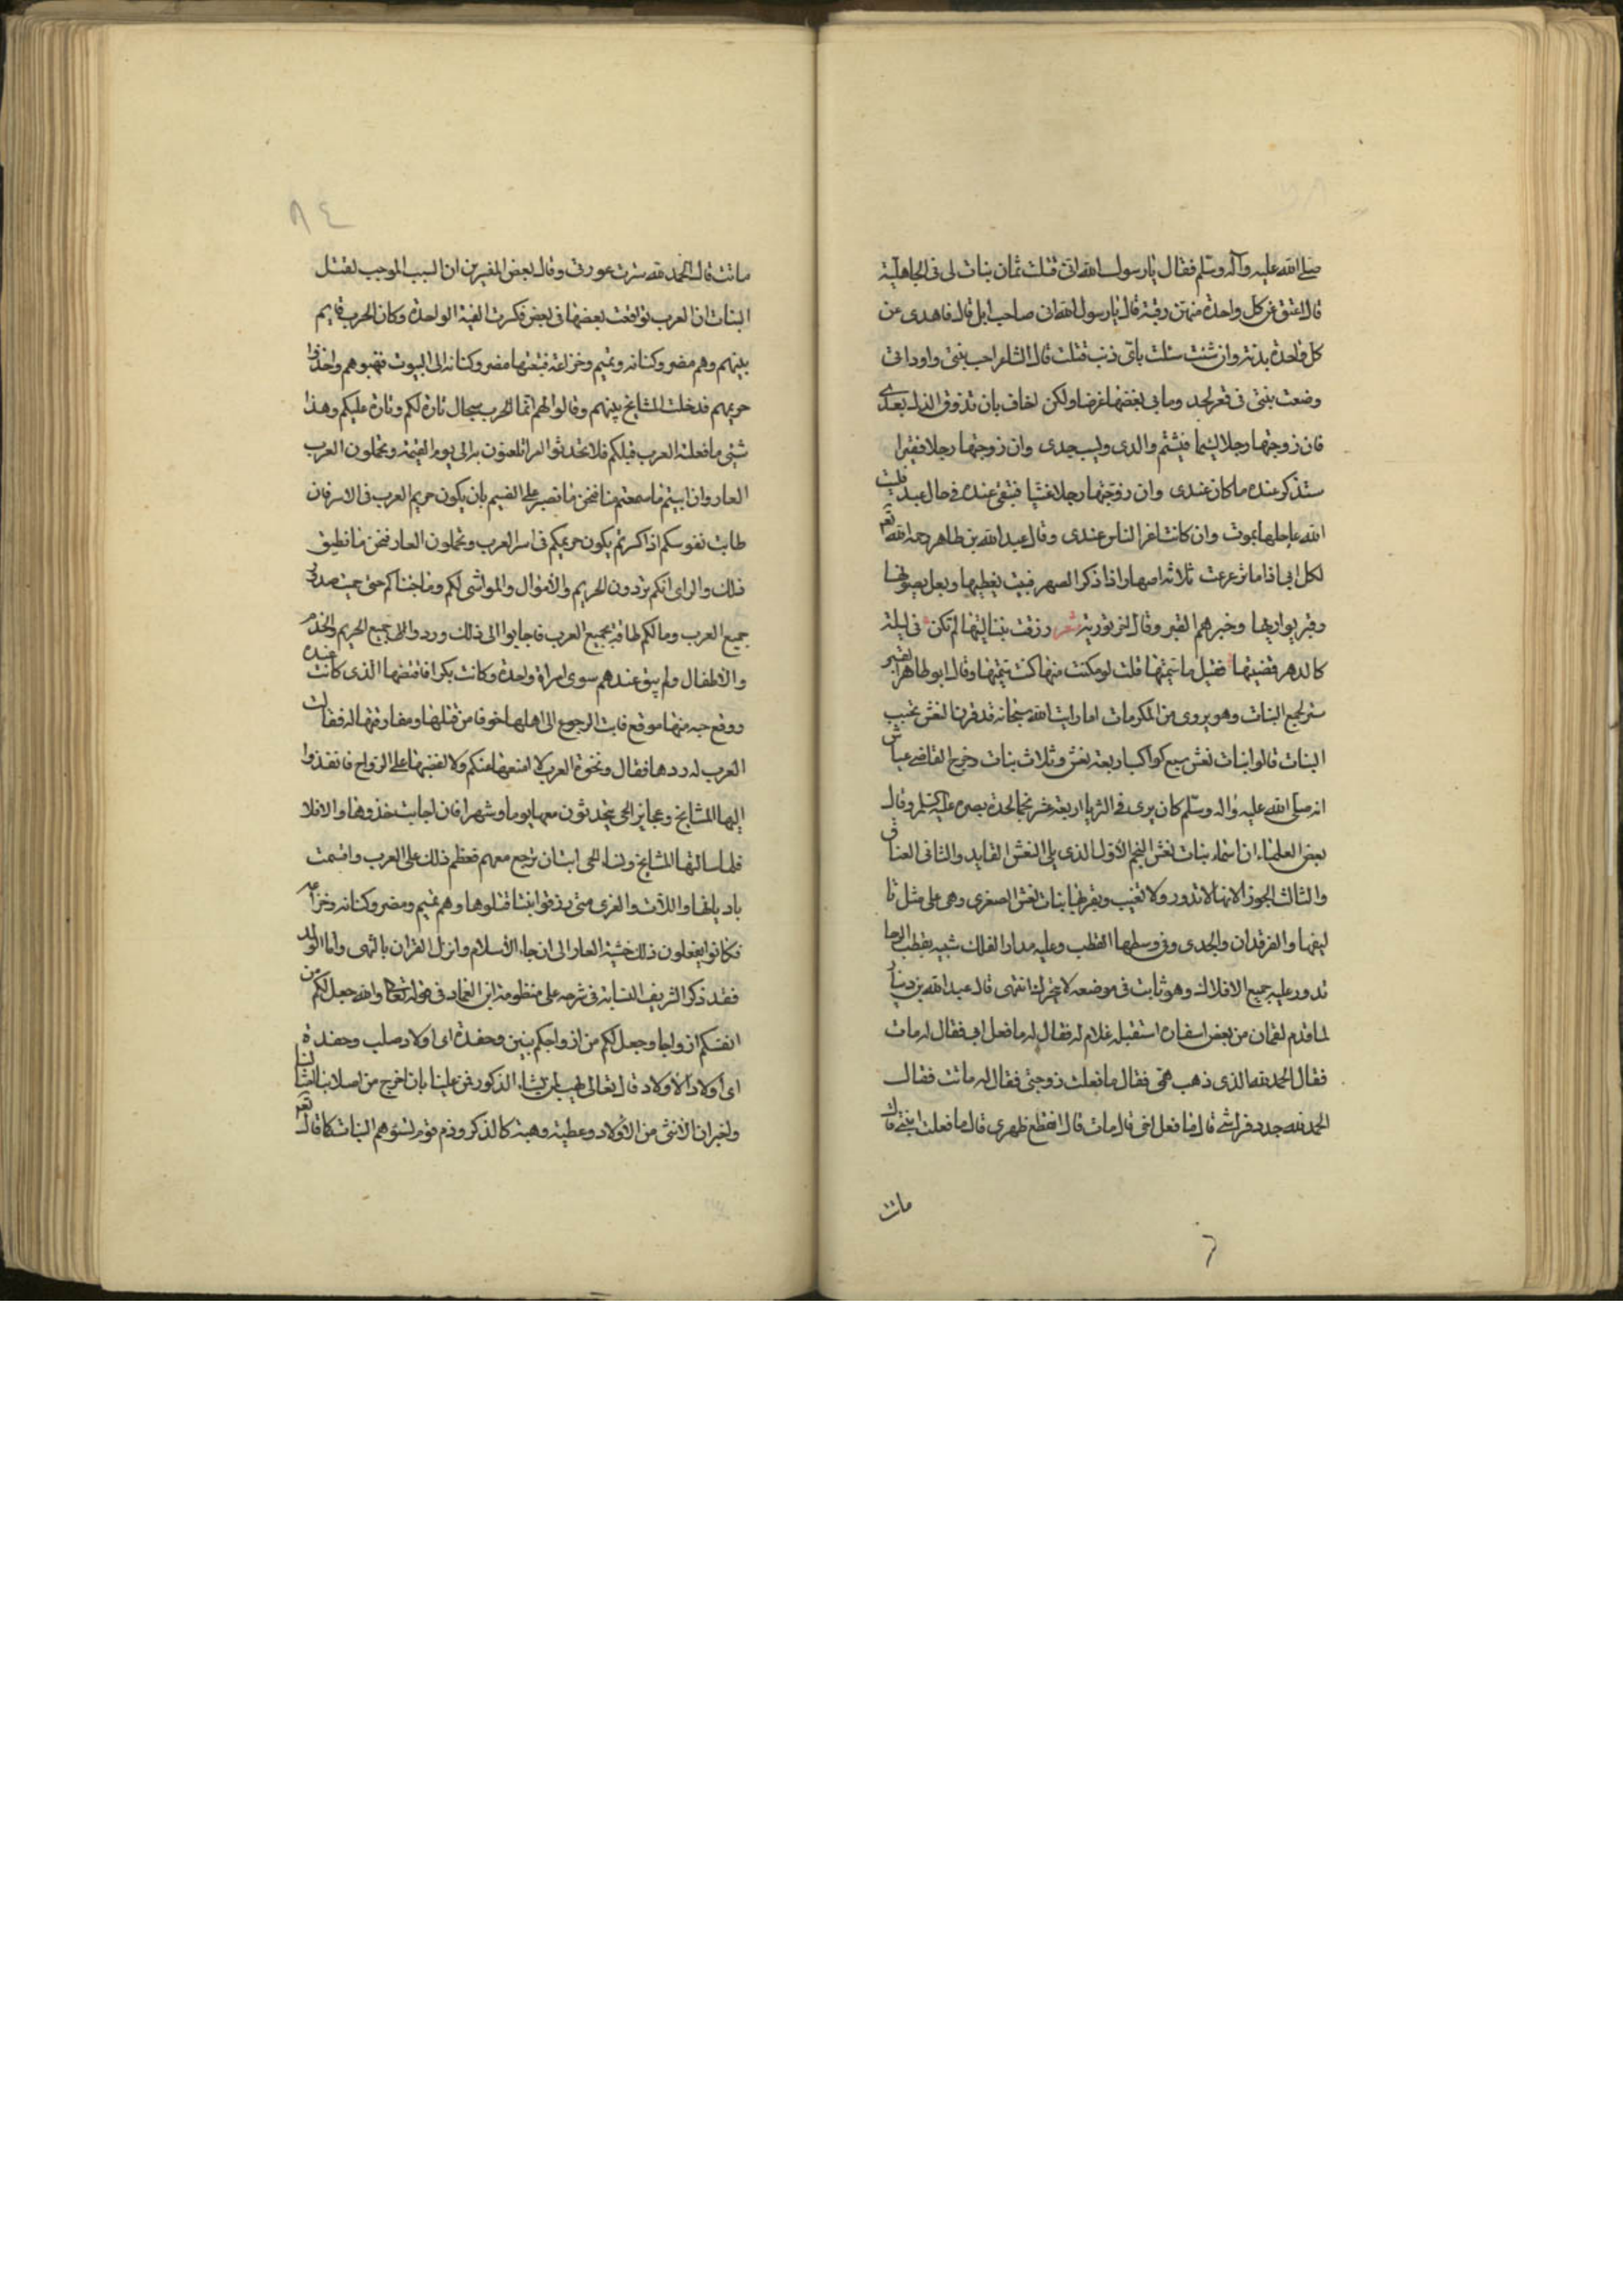 صلى الله عليه وآله وسلم فقال يارسول الله انى قتلت ثمان بنات لى فى الجاهلية
قال اعتق عن كل واحدة منهن رقبة قال يارسول الله انى صاحب ابل قال فاهدى عن
كل واحدة بدنة وان شئت سئلت باى ذنب قتلت قال الشاعر احب بنتى واودانى
وضعت بنتى فى قعر لحد وما بى بغضها غرضا ولكن اخاف بان تذوق الذل بعدى
فان زوجتها رجلا لئيما فيشتم والدى ويسب جدى وان زوجتها رجلا فقيرا
ستذكر عنده ماكان عندى وان زوجتها رجلا غنيا فتبقى عنده فى حال عبد فليت
الله عاجلها بموت وان كانت اعز الناس عندى وقال عبد الله بن طاهر رحمه الله تع
لكل ابى اذا ما ترعرعت ثلاثة اصهار اذا ذكر الصهر فبيت يغطيها وبعل يصونها
وقبر يواريها وخيرهم القبر وقال شعر رزقت بنتا ليتها لم تكن فى ليلة
كالدهر قضيتها فقيل ما سميتها قلت لو مكنت منها كنت سميتها وقال ابو طاهر القبر
ستر لجميع البنات وهو يروى من المكرمات اما رايت الله سبحانه قد قرنا لنعش بجنب
البنات قالوا بنات نعش سبع كواكب اربعة نعش وثلاث بنات وخرج القاضى عياش
انه صلى الله عليه واله وسلم كان يرى فى الثريا اربعة عشر نجما لحدة بصره عليه السلم وقال
بعض العلماء ان اسماء بنات نعش النجم الاول الذى يلى النعش القايد والثانى العناق
والثالث الجوز لانها لا تدور ولا تغيب وبقربها بنات نعش الصغرى وهى على مثل تا
ليفها والفرقدان والجدى وفى وسطها القطب وعليه مدار الفلك شبيه بقطب الرحا
تدور عليه جميع الافلاك وهو ثابت فى موضعه لا يتحرك انتهى قال عبد الله بن دينار
لما قدم لقمان من بعض اسفاره استقبله غلام له فقال له ما فعل ابى فقال له مات
فقال الحمد لله الذى ذهب همى فقال ما فعلت زوجتى فقال له ماتت فقال
الحمد لله جدد فراشى قال ما فعل اخى قال مات قال انقطع ظهرى قال ما فعلت ابنتى قال
مات
٨٤
ماتت قال الحمد لله سترت عورتى وقال بعض المفسرين ان السبب الموجب لقتل
البنات ان العرب تواقعت بعضها فى بعض فكرت الفئة الواحدة وكان الحرب قايم
بينهم وهم مضر وكنانه وتميم وخزاعة فتبعتها مضر وكنانه الى البيوت فنهبوهم واخذوا
حريمهم فدخلت المشايخ بينهم وقالوا لهم انما الحرب سجال تارة لكم وتارة عليكم وهذا
شئى ما فعلته العرب قبلكم فلا تحدثوا امرا تلعنون به الى يوم القيمة وتحملون العرب
العار وان ابيتم ما سمعتم منا فنحن ما نصبر على الضيم بان يكون حريم العرب فى الاسر فان
طابت نفوسكم اذا كسرتم يكون حريمكم فى اسر العرب وتحملون العار فنحن ما نطيق
ذلك والراى انكم تردون الحريم والاموال والمواشى لكم وما جئناكم حتى جيت صدور
جميع العرب وما لكم طاقة بجميع العرب فاجابوا الى ذلك وردوا لهم جميع الحريم والخدم
والاطفال ولم يبق عندهم سوى امراة واحدة وكانت بكرا فافتضها الذى كانت عنده
ووقع حبه منها موقع فابت الرجوع الى اهلها خوفا من قتلها ومفارقتها له فقالت
العرب له ردها فقال ونخوة العرب لا امنعها عنكم ولا اغصبها على الرواح فانفذوا
اليها المشايخ وعجايز الحى يتحدثون معها يوما وشهرا فان اجابت خذوها والا فلا
فلما سالتها المشايخ ونساء الحى ابت ان ترجع معهم فعظم ذلك على العرب واقسمت
باديانها واللات والعزى متى رزقوا بنتا قتلوها وهم تميم ومضر وكنانه وخزاعه
فكانوا يفعلون ذلك خشية العار الى ان جاء الاسلام وانزل القران بالنهى واما الولد
فقد ذكر الشريف النسابة فى شرحه على منظومة ابن العماد فى قوله تعالى والله جعل لكم من
انفسكم ازواجا وجعل لكم من ازواجكم بنين وحفدة اى اولاد صلب وحفدة
اى اولاد الاولاد قال تعالى يهب لمن يشاء الذكور فمن علينا بان اخرج من اصلابنا انسانا
واخبر ان الانثى من الاولاد وعطية وهبة كالذكر وذم قوم تسوهم البنات كما قال تع